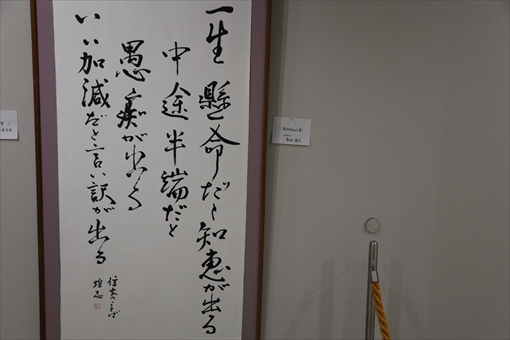 一生懸命だと知恵が出る
中途半端だと
愚痴が出る
いい加減だと言い訳が出る
信玄ことば